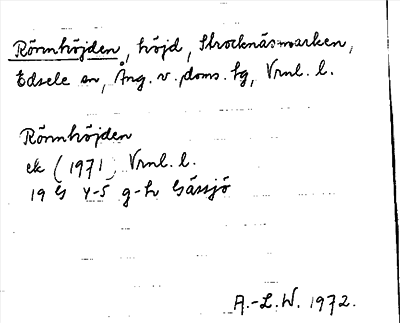 Rönnhöjden, höjd, Strocknäsmarken,
Edsele sn, Ång. v. doms. tg, Vrnl. l.
Rönnhöjden
ek (1971) Vrnl. l.
19 G 4-5 g-h Gässjö
A.-L. W. 1972.